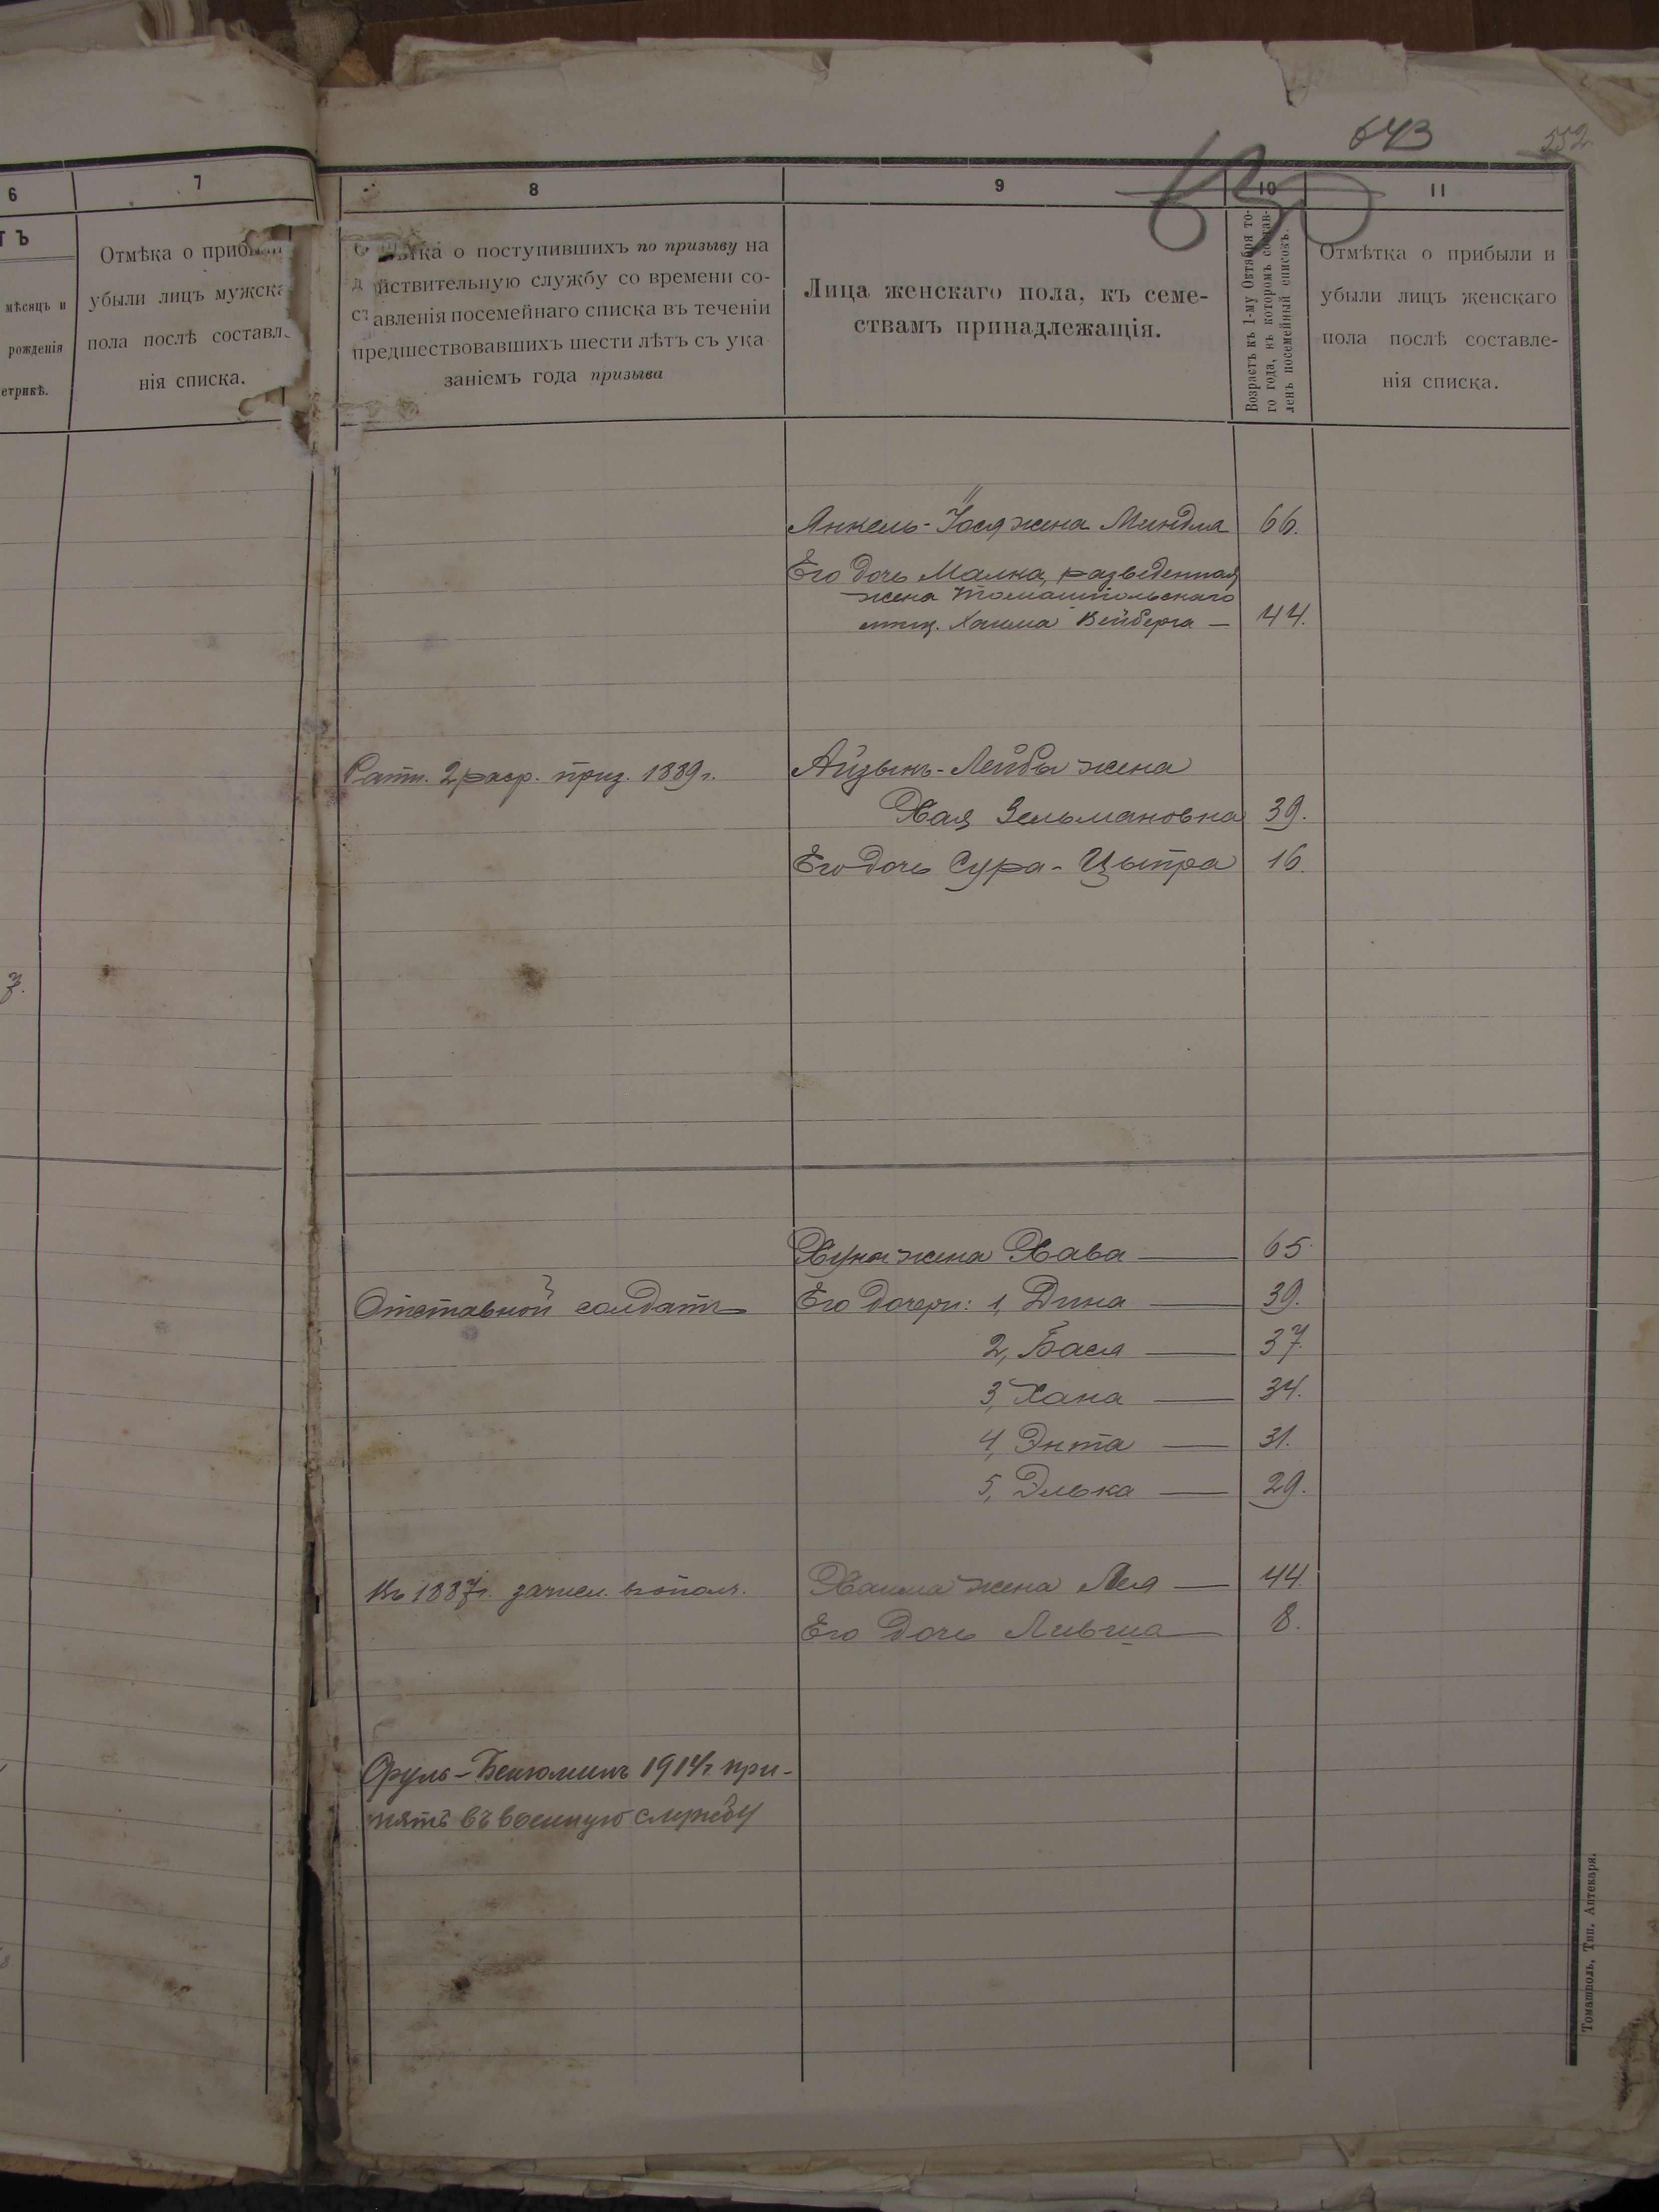 643
552
630
6
7
8
9
10
11
ТЪ
мѣсяцъ и
рожденія
етрикѣ.
Отмѣка о прибыли
убыли лицъ мужска
пола послѣ составл
нія списка.
тка о поступившихъ по призыву на
дѣйствительную службу со времени со-
ставленія посемейнаго списка въ теченіи
предшествовавшихъ шести лѣтъ съ ука
заніемъ года призыва
Лица женскаго пола, къ семе-
ствамъ принадлежащія.
Возрастъ къ 1-му Октября то-
го года, въ которомъ состав-
ленъ посемейный списокъ.
Отмѣтка о прибыли и
убыли лицъ женскаго
пола послѣ составле-
нія списка.
Янкель-Іося жена Миндля 66.
Его дочь Малка, разведенная
жена Томашпольскаго
мѣщ. Хаима Вейберга — 44.
Ратн. 2 разр. приз. 1889 г. Айзыкъ-Лейбы жена
Хая Зельмановна 39.
Его дочь Сура-Цыпра 16.
З.
Хуны жена Хава — 65.
Отставной солдатъ Его дочери: 1, Дина — 39.
2, Бася — 37.
3, Хана — 34.
4, Энта — 31.
5, Элька — 29.
Въ 1887 г. зачисл. в ополч. Хаима жена Лея — 44.
Его дочь Ливша — 8.
Сруль-Бенюминъ 1914 г. при-
нятъ въ военную службу
Томашполь, Тип. Аптекаря.